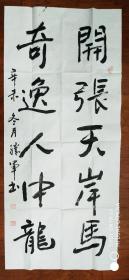 開張天岸馬
奇逸人中龍
辛未冬月
書